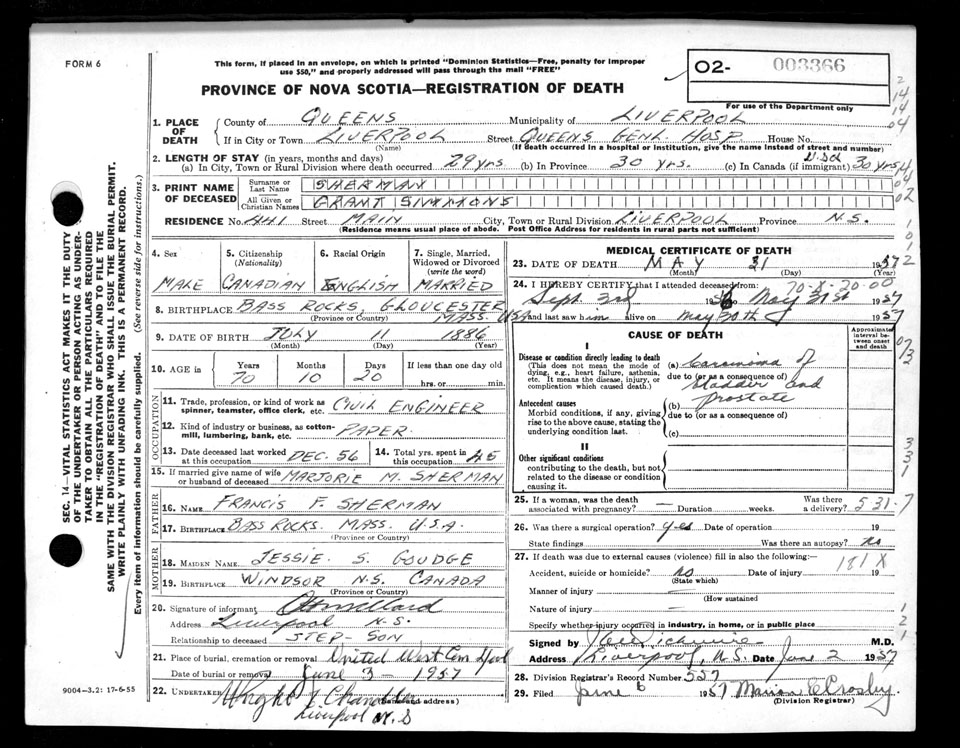 FORM 6
This form, if placed in an envelope, on which is printed "Dominion Statistics—Free, penalty for improper
use $50," and properly addressed will pass through the mail "FREE"
O2- 003366
For use of the Department only
PROVINCE OF NOVA SCOTIA—REGISTRATION OF DEATH
1. PLACE OF DEATH
County of QUEENS Municipality of LIVERPOOL
If in City or Town LIVERPOOL Street QUEENS GENL. HOSP. House No.
(Name) (If death occurred in a hospital or institution, give the name instead of street and number)
2. LENGTH OF STAY (in years, months and days)
(a) In City, Town or Rural Division where death occurred 29 yrs. (b) In Province 30 yrs. (c) In Canada (if immigrant) 30 yrs
3. PRINT NAME OF DECEASED
Surname or Last Name SHERMAN
All Given or Christian Names GRANT SIMMONS
RESIDENCE No. 441 Street MAIN City, Town or Rural Division LIVERPOOL Province N.S.
(Residence means usual place of abode. Post Office Address for residents in rural parts not sufficient)
SEC. 14—VITAL STATISTICS ACT MAKES IT THE DUTY
OF THE UNDERTAKER OR PERSON ACTING AS UNDER-
TAKER TO OBTAIN ALL THE PARTICULARS REQUIRED
IN THE "REGISTRATION OF DEATH" AND TO FILE THE
SAME WITH THE DIVISION REGISTRAR WHO SHALL ISSUE THE BURIAL PERMIT.
WRITE PLAINLY WITH UNFADING INK. THIS IS A PERMANENT RECORD.
Every item of information should be carefully supplied. (See reverse side for instructions.)
4. Sex
MALE
5. Citizenship
(Nationality)
CANADIAN
6. Racial Origin
ENGLISH
7. Single, Married,
Widowed or Divorced
(write the word)
MARRIED
8. BIRTHPLACE BASS ROCKS, GLOUCESTER
MASS. USA
(Province or Country)
9. DATE OF BIRTH JULY 11 1886
(Month) (Day) (Year)
10. AGE in
Years Months Days If less than one day old
70 10 20 hrs. or min.
OCCUPATION
11. Trade, profession, or kind of work as
spinner, teamster, office clerk, etc. CIVIL ENGINEER
12. Kind of industry or business, as cotton-
mill, lumbering, bank, etc. PAPER
13. Date deceased last worked
at this occupation DEC. 56
14. Total yrs. spent in
this occupation 45
15. If married give name of wife
or husband of deceased MARJORIE M. SHERMAN
FATHER
16. NAME FRANCIS F. SHERMAN
17. BIRTHPLACE BASS ROCKS. MASS. U.S.A.
(Province or Country)
MOTHER
18. MAIDEN NAME JESSIE S. GOUDGE
19. BIRTHPLACE WINDSOR N.S. CANADA
(Province or Country)
20. Signature of informant
Address Liverpool N-S.
Relationship to deceased STEP-SON
21. Place of burial, cremation or removal United West Cem
Date of burial or removal June 3 - 1957
22. UNDERTAKER Wright
(Name and address)
Liverpool N.S
9004—3.2: 17-6-55
MEDICAL CERTIFICATE OF DEATH
23. DATE OF DEATH MAY 31 1957
(Month) (Day) (Year)
24. I HEREBY CERTIFY that I attended deceased from: 70-X-20-00
Sept. 3rd 195 to May 31st 1957
and last saw him alive on May 30th 1957
CAUSE OF DEATH
Approximate
interval
between onset
and death
I
Disease or condition directly leading to death
(This does not mean the mode of
dying, e.g., heart failure, asthenia,
etc. It means the disease, injury, or
complication which caused death.)
(a) Carcinoma of
due to (or as a consequence of)
bladder and
Antecedent causes
Morbid conditions, if any, giving
rise to the above cause, stating the
underlying condition last.
(b) prostate
due to (or as a consequence of)
(c)
II
Other significant conditions
contributing to the death, but not
related to the disease or condition
causing it.
25. If a woman, was the death
associated with pregnancy? — Duration weeks. Was there
a delivery? 531-7
26. Was there a surgical operation? yes Date of operation 19
State findings Was there an autopsy? no
27. If death was due to external causes (violence) fill in also the following:—
181 X
Accident, suicide or homicide? no Date of injury 19
(State which)
Manner of injury —
(How sustained
Nature of injury —
Specify whether injury occurred in industry, in home, or in public place
Signed by M.D.
Address Liverpool, N.S. Date June 2 1957
28. Division Registrar's Record Number 557
29. Filed June 6 1957 Marion E Crosby
(Division Registrar)